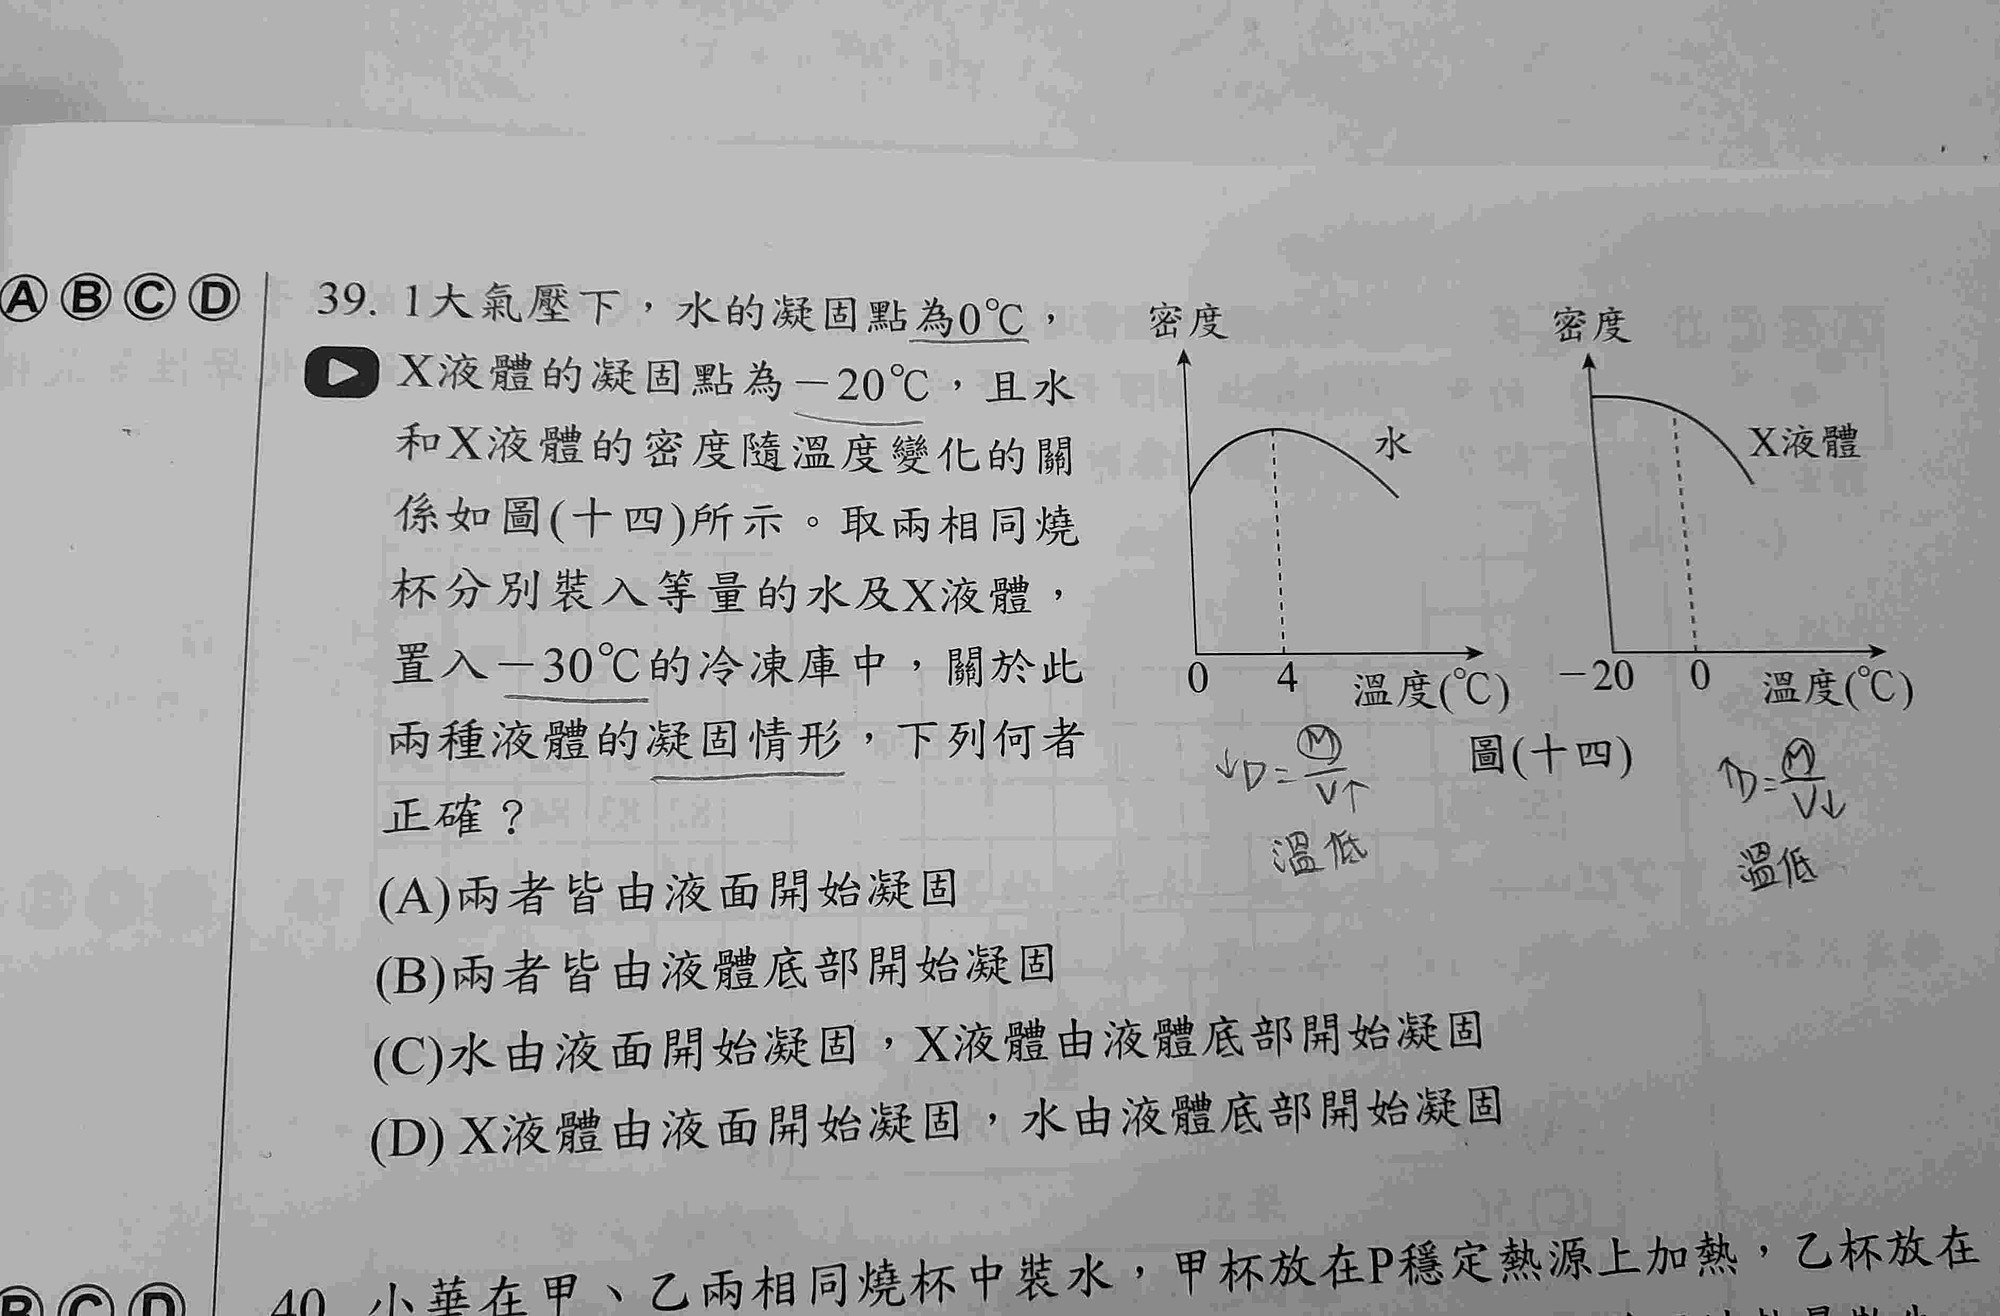 ⒶⒷⒸⒹ
39. 1大氣壓下，水的凝固點為0℃，
X液體的凝固點為－20℃，且水
和X液體的密度隨溫度變化的關
係如圖(十四)所示。取兩相同燒
杯分別裝入等量的水及X液體，
置入－30℃的冷凍庫中，關於此
兩種液體的凝固情形，下列何者
正確？
密度
水
0 4 溫度(℃)
密度
X液體
－20 0 溫度(℃)
圖(十四)
↓D=M/V↑
溫低
↑D=M/V↓
溫低
(A)兩者皆由液面開始凝固
(B)兩者皆由液體底部開始凝固
(C)水由液面開始凝固，X液體由液體底部開始凝固
(D) X液體由液面開始凝固，水由液體底部開始凝固
ⒷⒸⒹ
40 小華在甲、乙兩相同燒杯中裝水，甲杯放在P穩定熱源上加熱，乙杯放在